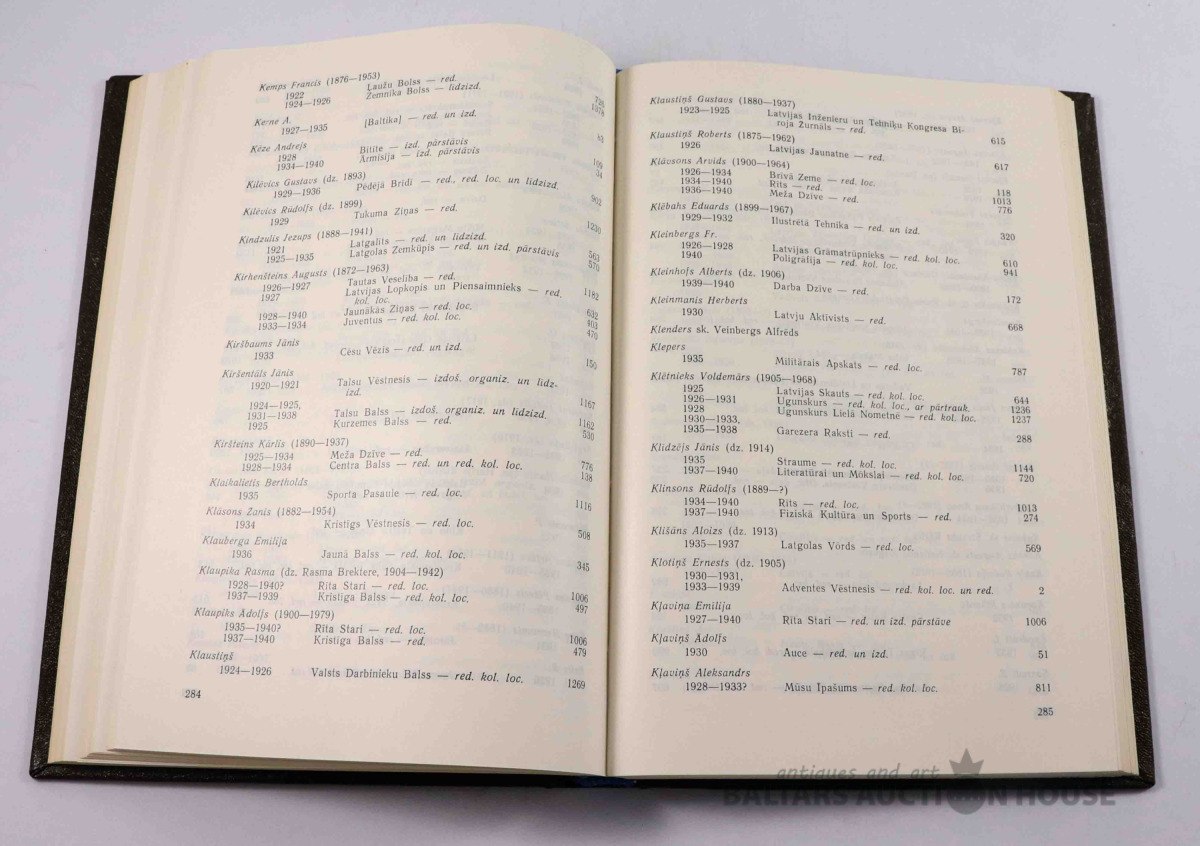 Kemps Francis (1876—1953)
1922 Ļaužu Bolss — red. 726
1924—1926 Zemnīka Bolss — līdzizd. 1378
Kerne A.
1927—1935 [Baltika] — red. un izd. 83
Ķēze Andrejs
1928 Bitīte — izd. pārstāvis 109
1934—1940 Armīsija — izd. pārstāvis 34
Kilēvics Gustavs (dz. 1893)
1929—1936 Pēdējā Brīdī — red., red. loc. un līdzizd. 902
Kilēvics Rūdolfs (dz. 1899)
1929 Tukuma Ziņas — red. 1230
Kindzulis Jezups (1888—1941)
1921 Latgalīts — red. un līdzizd. 563
1925—1935 Latgolas Zemkūpis — red. un izd. pārstāvis 570
Kirhenšteins Augusts (1872—1963)
1926—1927 Tautas Veselība — red. 1182
1927 Latvijas Lopkopis un Piensaimnieks — red.
kol. loc. 632
1928—1940 Jaunākās Ziņas — red. loc. 403
1933—1934 Juventus — red. kol. loc. 470
Kiršbaums Jānis
1933 Cēsu Vēzis — red. un izd. 150
Kiršentāls Jānis
1920—1921 Talsu Vēstnesis — izdoš. organiz. un līdz-
izd. 1167
1924—1925,
1931—1938 Talsu Balss — izdoš. organiz. un līdzizd. 1162
1925 Kurzemes Balss — red. 530
Kiršteins Kārlis (1890—1937)
1925—1934 Meža Dzīve — red. 776
1928—1934 Centra Balss — red. un red. kol. loc. 138
Klaikalietis Bertholds
1935 Sporta Pasaule — red. loc. 1116
Klāsons Žanis (1882—1954)
1934 Kristīgs Vēstnesis — red. loc. 508
Klauberga Emīlija
1936 Jaunā Balss — red. kol. loc. 345
Klaupika Rasma (dz. Rasma Brektere, 1904—1942)
1928—1940? Rīta Stari — red. loc. 1006
1937—1939 Kristīgā Balss — red. kol. loc. 497
Klaupiks Ādolfs (1900—1979)
1935—1940? Rīta Stari — red. loc. 1006
1937—1940 Kristīgā Balss — red. 479
Klaustiņš
1924—1926 Valsts Darbinieku Balss — red. kol. loc. 1269
284
Klaustiņš Gustavs (1880—1937)
1923—1925 Latvijas Inženieru un Tehniķu Kongresa Bi-
roja Žurnāls — red. 615
Klaustiņš Roberts (1875—1962)
1926 Latvijas Jaunatne — red. 617
Klāvsons Arvids (1900—1964)
1926—1934 Brīvā Zeme — red. loc. 118
1934—1940 Rīts — red. 1013
1936—1940 Meža Dzīve — red. 776
Klēbahs Eduards (1899—1967)
1929—1932 Ilustrētā Tehnika — red. un izd. 320
Kleinbergs Fr.
1926—1928 Latvijas Grāmatrūpnieks — red. kol. loc. 610
1940 Poligrāfija — red. kol. loc. 941
Kleinhofs Alberts (dz. 1906)
1939—1940 Darba Dzīve — red. 172
Kleinmanis Herberts
1930 Latvju Aktīvists — red. 668
Klenders sk. Veinbergs Alfrēds
Klepers
1935 Militārais Apskats — red. loc. 787
Klētnieks Voldemārs (1905—1968)
1925 Latvijas Skauts — red. kol. loc. 644
1926—1931 Ugunskurs — red. kol. loc., ar pārtrauk. 1236
1928 Ugunskurs Lielā Nometnē — red. kol. loc. 1237
1930—1933,
1935—1938 Gaŗezera Raksti — red. 288
Klīdzējs Jānis (dz. 1914)
1935 Straume — red. kol. loc. 1144
1937—1940 Literatūrai un Mākslai — red. kol. loc. 720
Klinsons Rūdolfs (1889—?)
1934—1940 Rīts — red. kol. loc. 1013
1937—1940 Fiziskā Kultūra un Sports — red. 274
Klišāns Aloizs (dz. 1913)
1935—1937 Latgolas Vōrds — red. loc. 569
Klotiņš Ernests (dz. 1905)
1930—1931,
1933—1939 Adventes Vēstnesis — red. kol. loc. un red. 2
Kļaviņa Emīlija
1927—1940 Rīta Stari — red. un izd. pārstāve 1006
Kļaviņš Ādolfs
1930 Auce — red. un izd. 51
Kļaviņš Aleksandrs
1928—1933? Mūsu Īpašums — red. kol. loc. 811
285
antiques and art
BALTARS AUCTION HOUSE